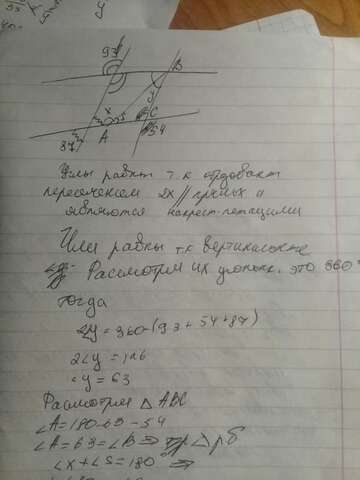 93
B
y
x
5
C
A
87
54
Углы равны т к
пересечением 2х // прямых и
являются накрест-лежащими
Или равны т к вертикальные
Рассмотрим их это 360°
тогда
2y = 360-(93+54+87)
2∠y = 126
∠y = 63
Рассмотрим △ ABC
∠A = 180-63-54
∠A = 63 = ∠B ⇒ △ рб
∠x + ∠5 = 180 ⇒